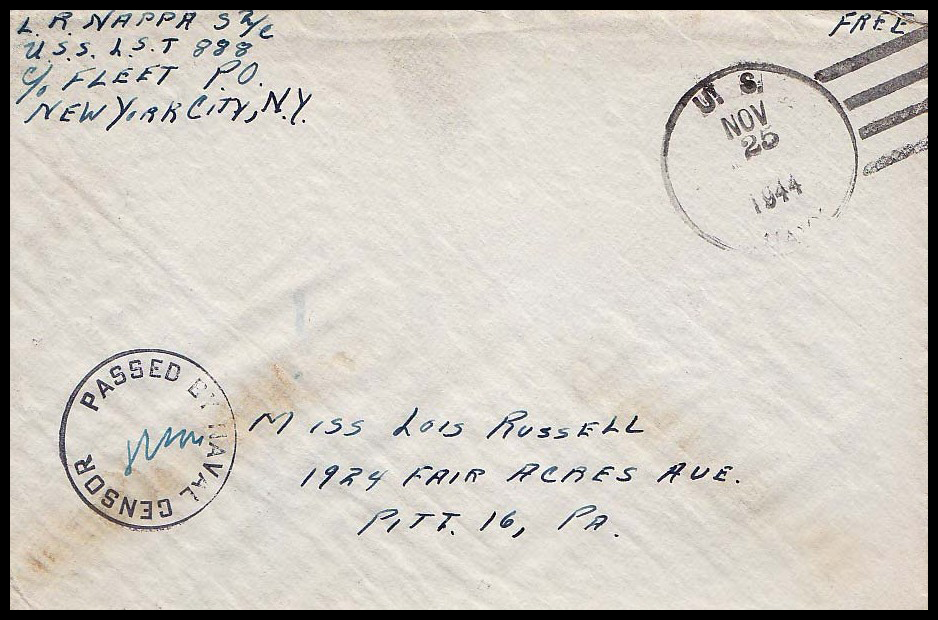 L. R. NAPPA S 2/C
U.S.S. L.S.T 888
C/O. FLEET P.O.
NEW YORK CITY, N.Y.
FREE
U. S.
NOV
25
1944
NAVY
PASSED BY NAVAL CENSOR
MISS LOIS RUSSELL
1924 FAIR ACRES AVE.
PITT. 16, PA.